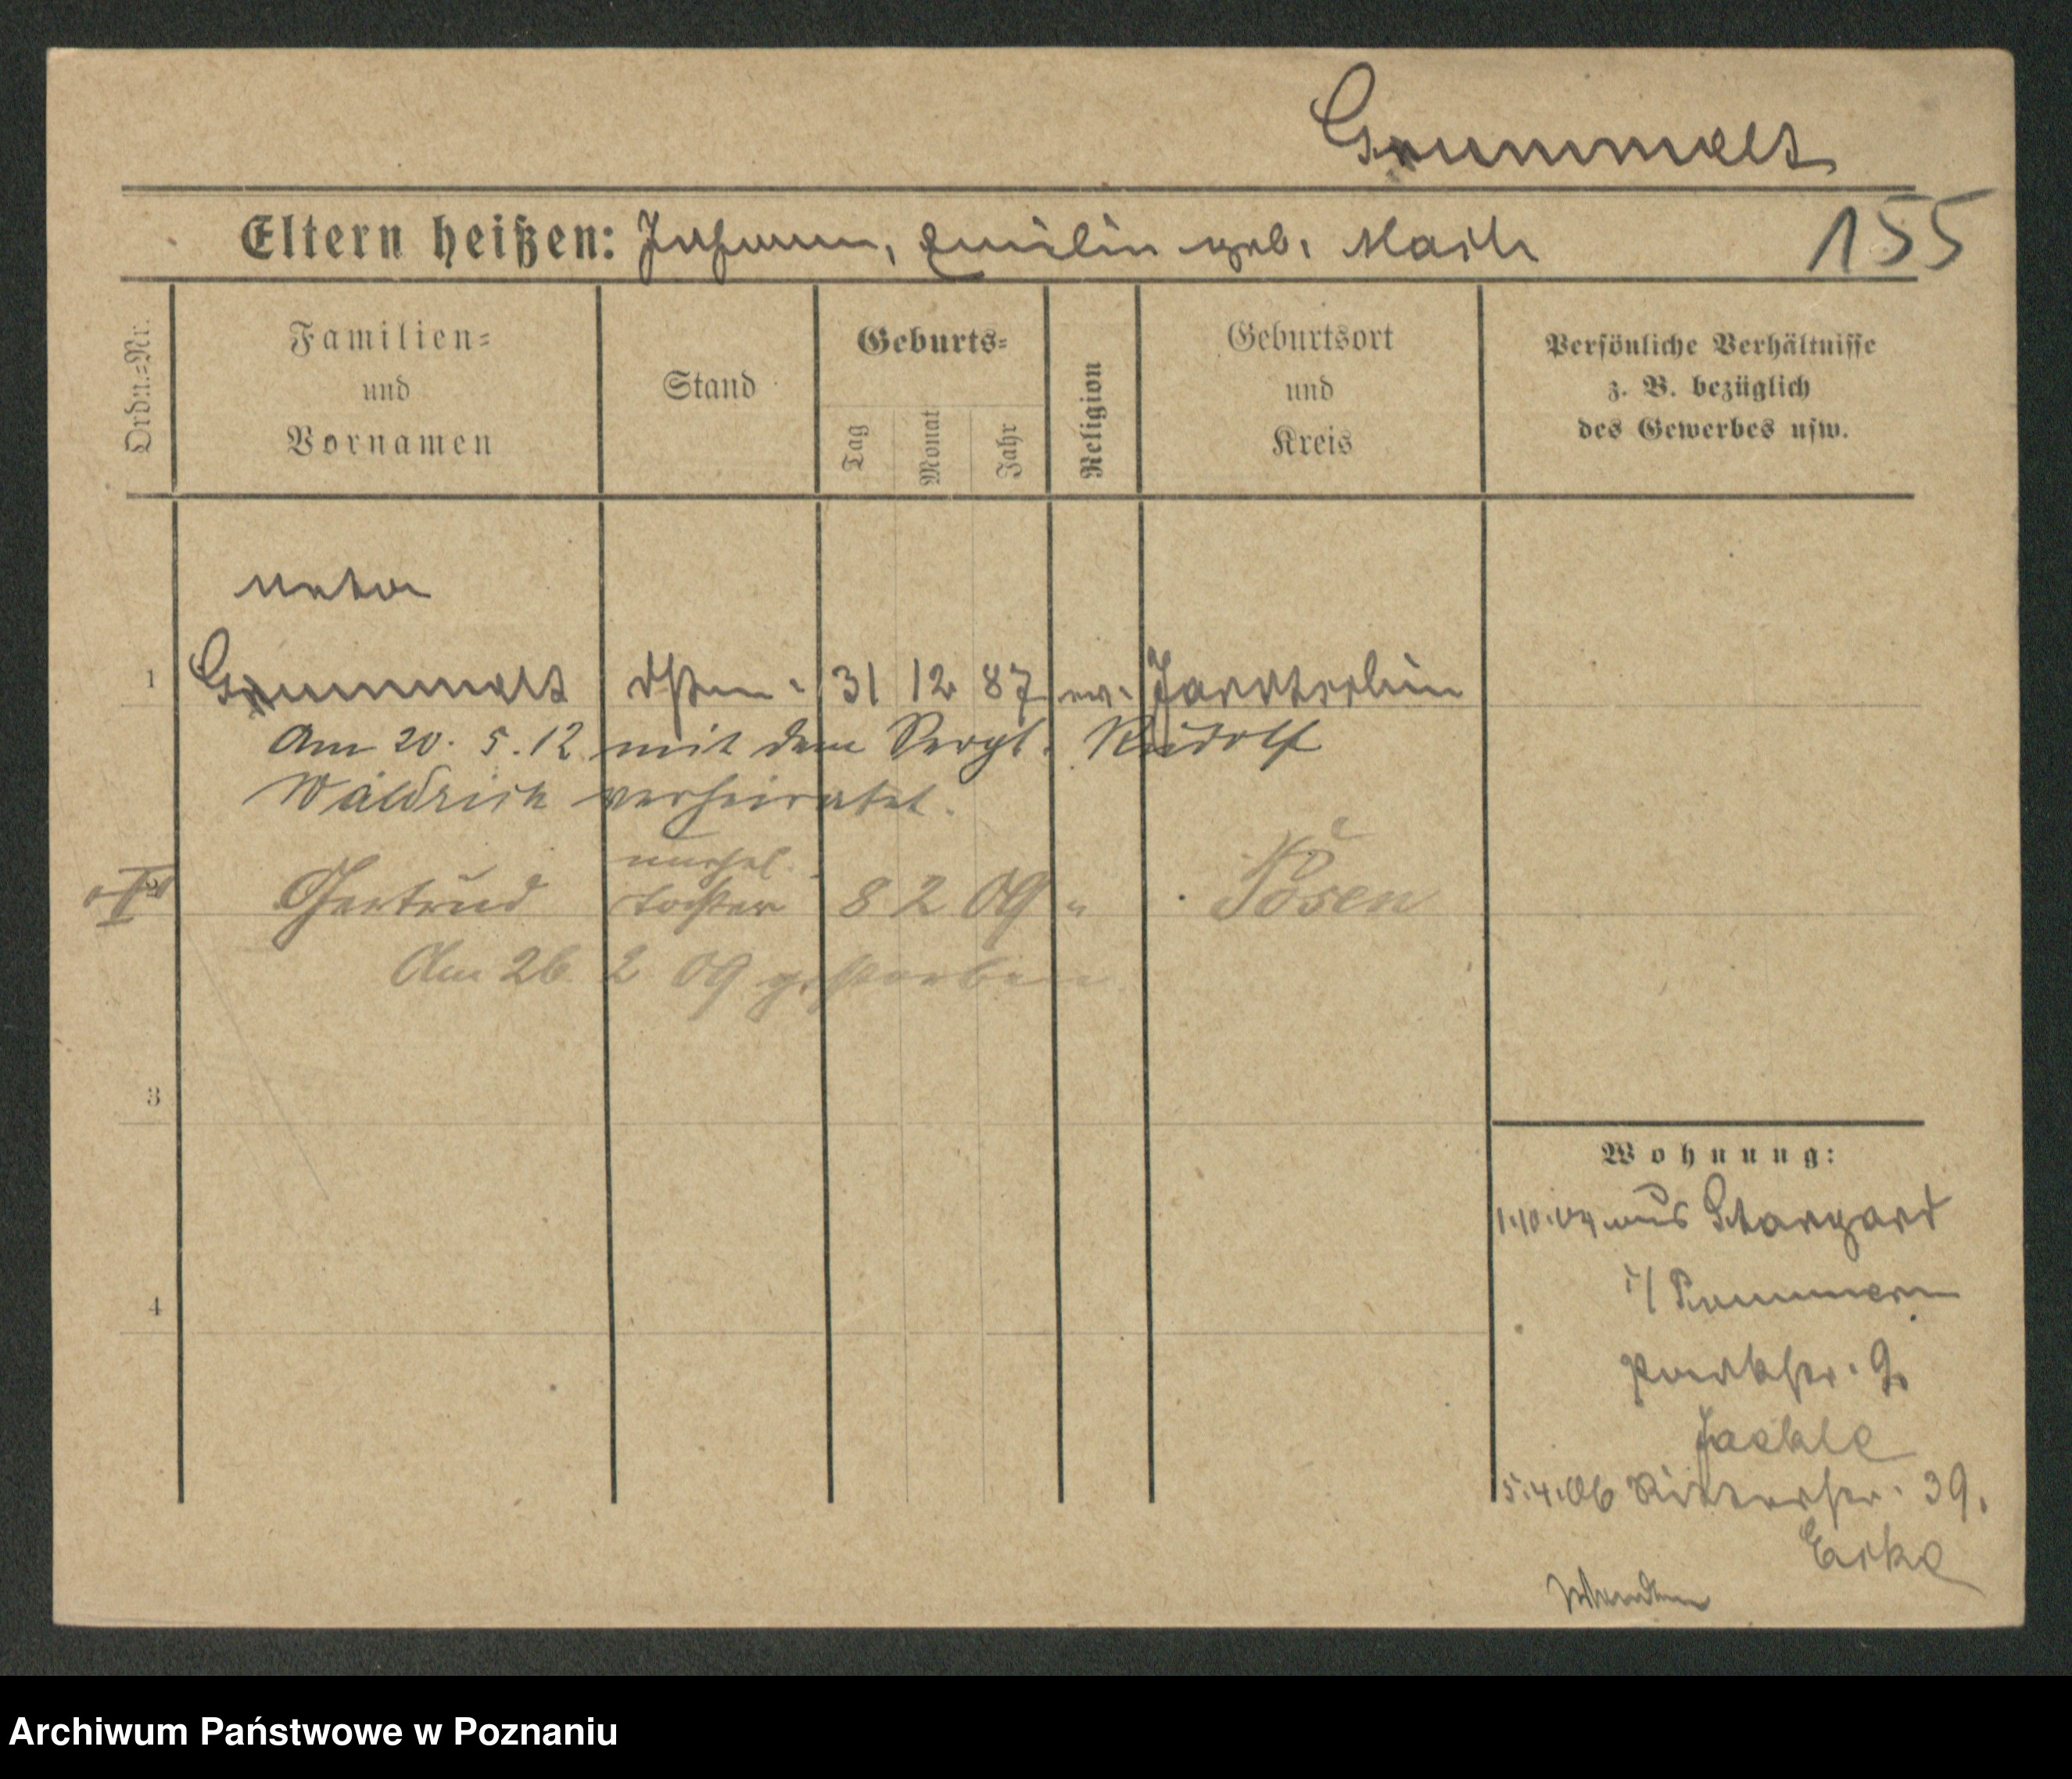 Grummelt
Eltern heißen: Johann, Emilie geb. Mach
155
Ordn.=Nr.
Familien=
und
Vornamen
Stand
Geburts=
Tag
Monat
Jahr
Religion
Geburtsort
und
Kreis
Persönliche Verhältnisse
z. B. bezüglich
des Gewerbes usw.
1 Grummelt 31 12 87 ev.
Am 20. 5. 12 mit dem Sergt. Rudolf
Waldrich verheiratet.
unehel.
2 Gertrud Tochter 8 2 09 " Posen
Am 26 2 09 gestorben
3
Wohnung:
1.10.04 aus Stargard
i/ Pommern
4
9.
Jaekle
5.4.06 Ritterstr. 39.
Archiwum Państwowe w Poznaniu